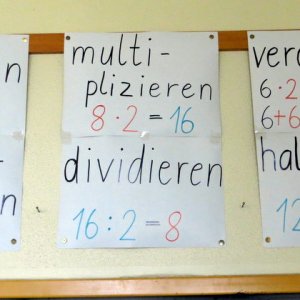 multi-
plizieren
8 · 2 = 16
dividieren
16 : 2 = 8
6 · 2
6+6
12